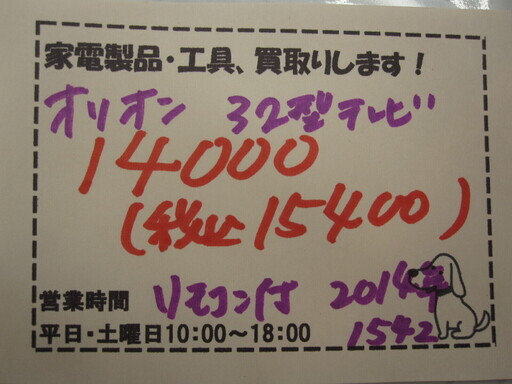 家電製品・工具、買取りします！
オリオン 32型テレビ
14000
(税込15400)
営業時間 リモコン付 2014年
平日・土曜日10:00～18:00 1542